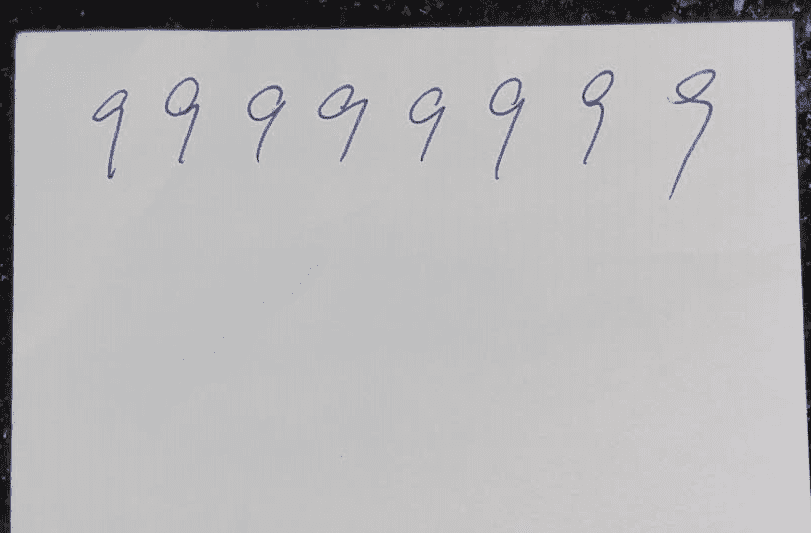 9 9 9 9 9 9 9 9